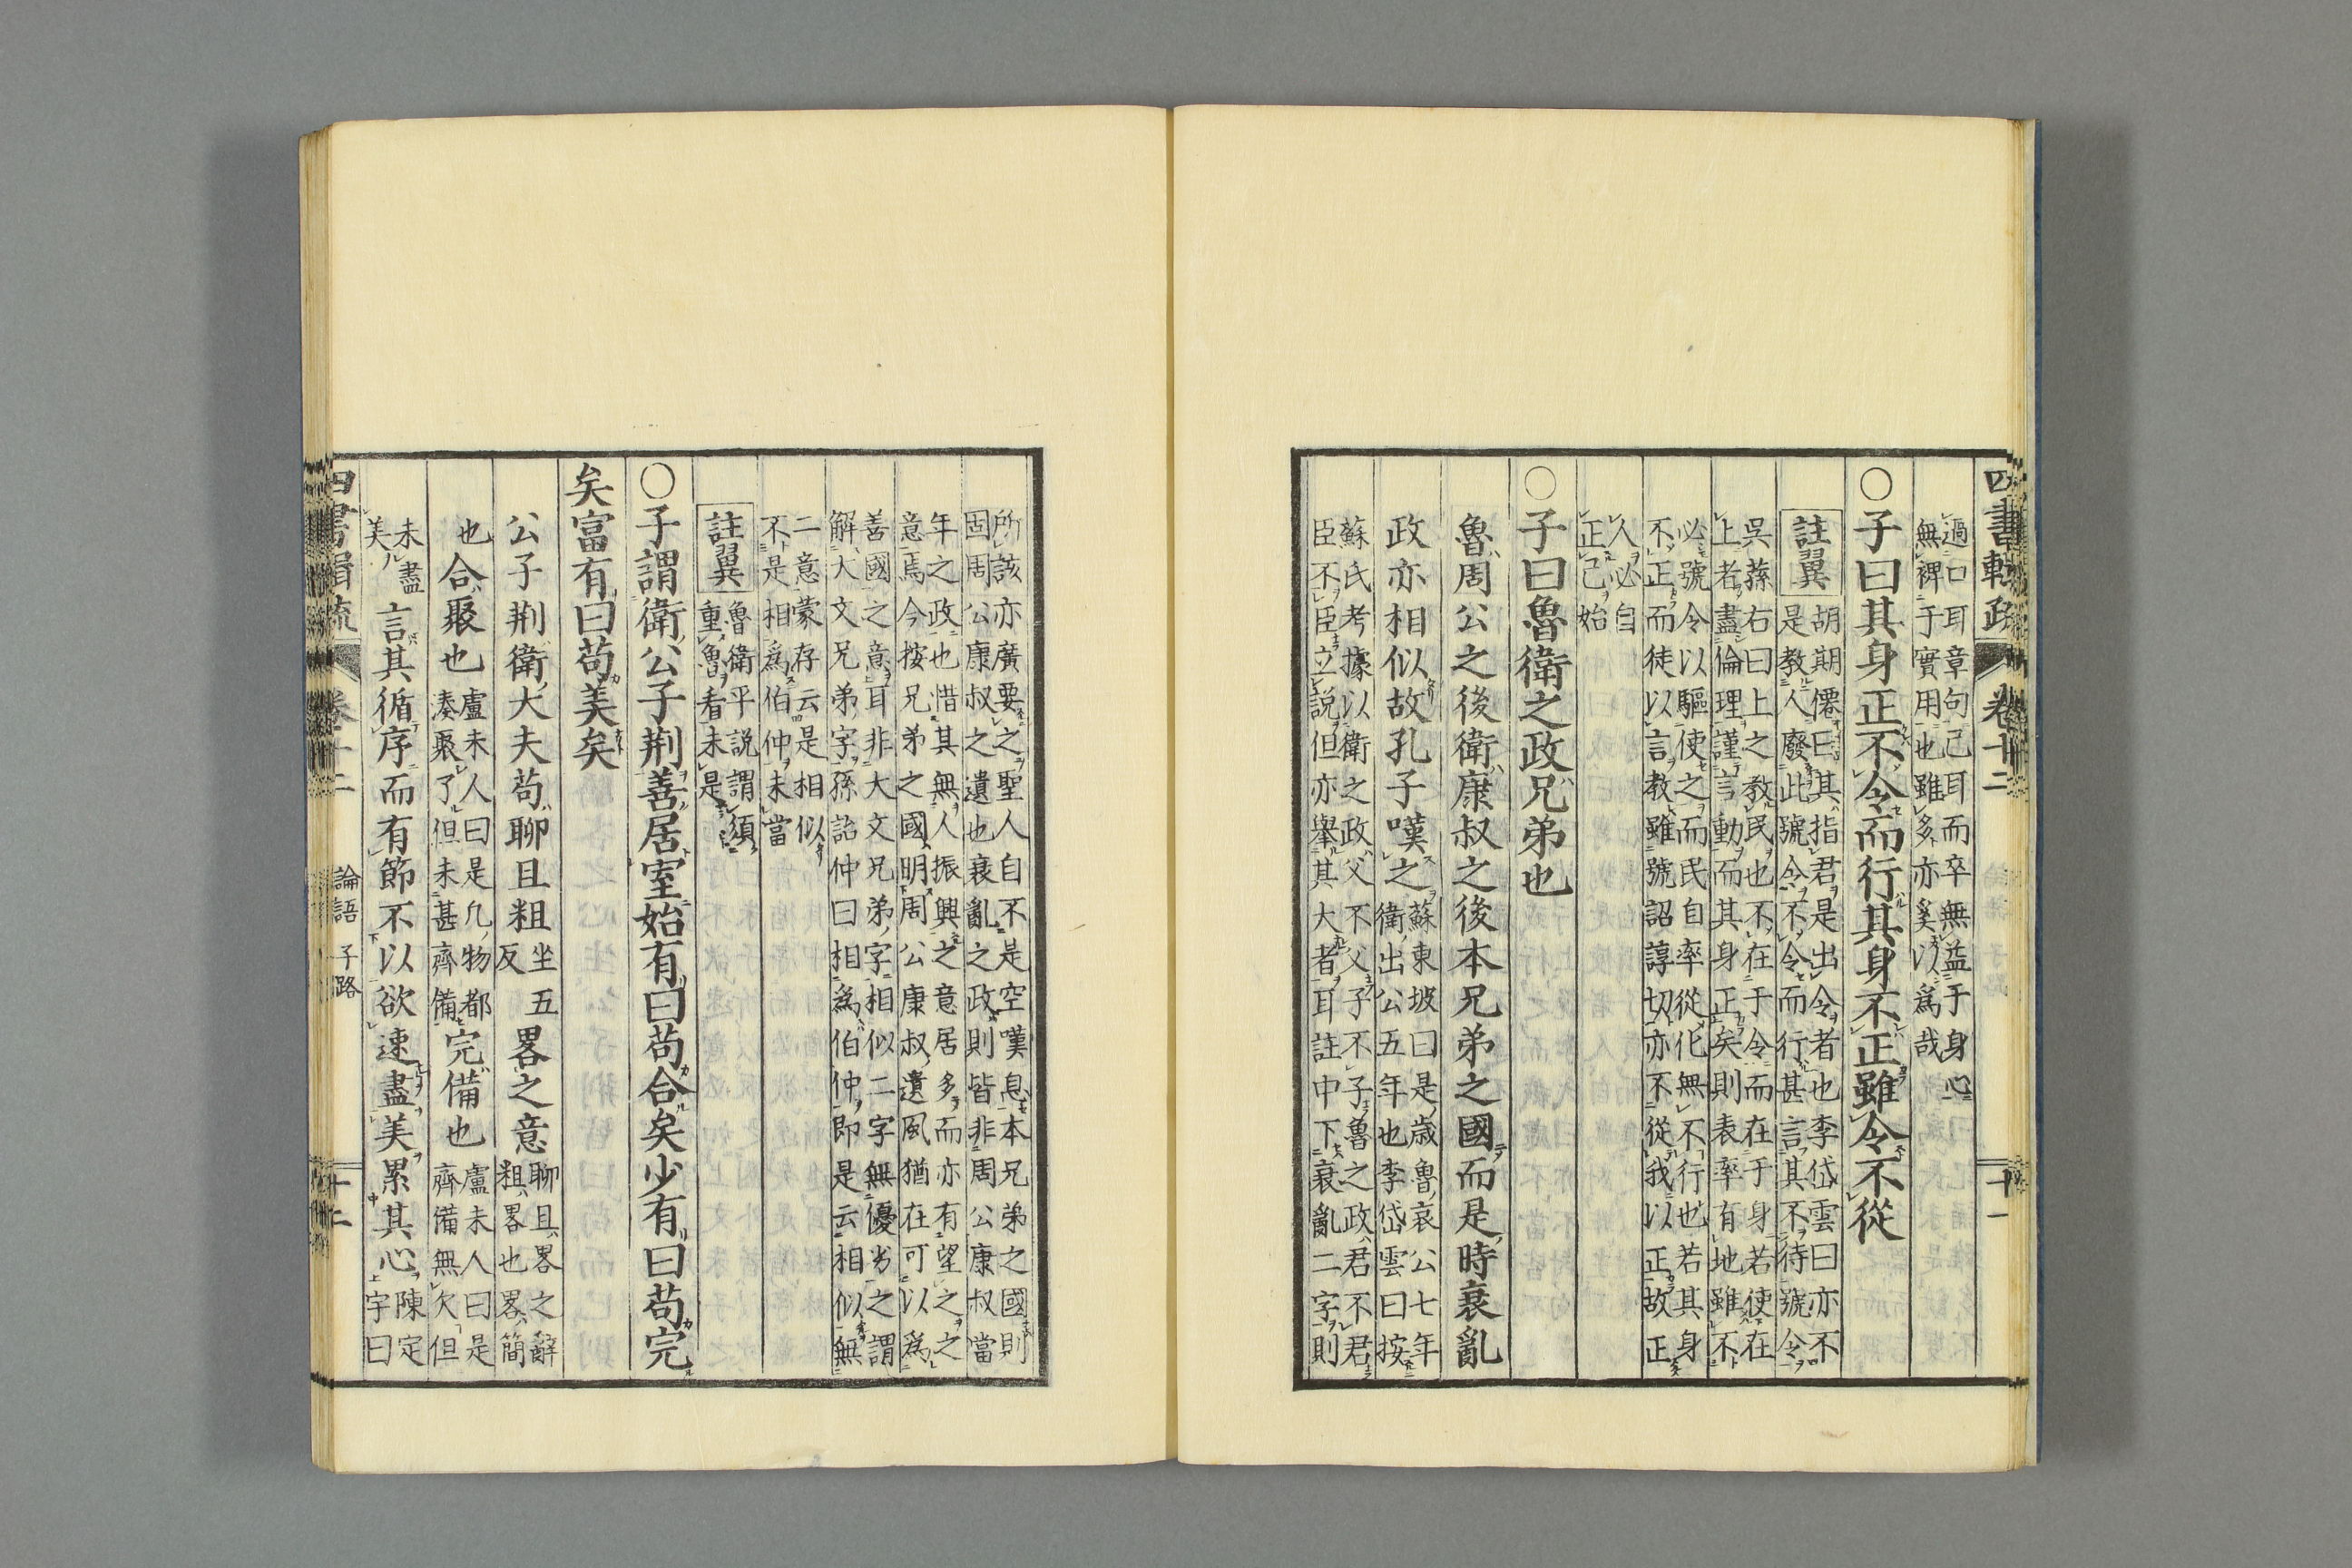 過口耳章句已耳而卒無益于身心
無裨于實用也雖多亦奚以爲哉
○子曰其身正不令而行其身不正雖令不從
註翼
胡期僊曰其指君是出令者也李岱雲曰亦不
是教人廢此號令不令而行甚言其不待號令
吳蓀右曰上之教民也不在于令而在于身若使在
上者盡倫理謹言動而其身正矣則表率有地雖不
必號令以驅使之而民自率從化無不行也若其身
不正而徒以言教雖號詔諄切亦不從我以正故正
人必自
正己始
○子曰魯衛之政兄弟也
魯周公之後衛康叔之後本兄弟之國而是時衰亂
政亦相似故孔子嘆之
蘇東坡曰是歲魯哀公七年
衛出公五年也李岱雲曰按
蘇氏考據以衛之政父不父子不子魯之政君不君
臣不臣立說但亦舉其大者耳註中下衰亂二字則
所該亦廣要之聖人自不是空嘆息本兄弟之國則
固周公康叔之遺也衰亂之政則皆非周公康叔當
年之政也惜其無人振興之意居多而亦有望之之
意焉今按兄弟之國明周公康叔遺風猶在可以爲
善國之意耳非大文兄弟字相似二字無優劣之謂
解大文兄弟字孫詒仲曰相爲伯仲即是云相似無
二意蒙存云是相似
不是相爲伯仲未當
註翼
魯衛平說謂須
重魯看未是
○子謂衛公子荆善居室始有曰苟合矣少有曰苟完
矣富有曰苟美矣
公子荆衛大夫苟聊且粗
坐五
反
畧之意
聊且畧之辭
粗畧也畧簡
也合聚也
盧未人曰是凡物都
湊聚了但未甚齊備
完備也
盧未人曰是
齊備無欠但
未盡
美
言其循序而有節不以欲速盡美累其心
陳定
宇曰
卷十二
論語
子路
十二
卷十二
十一